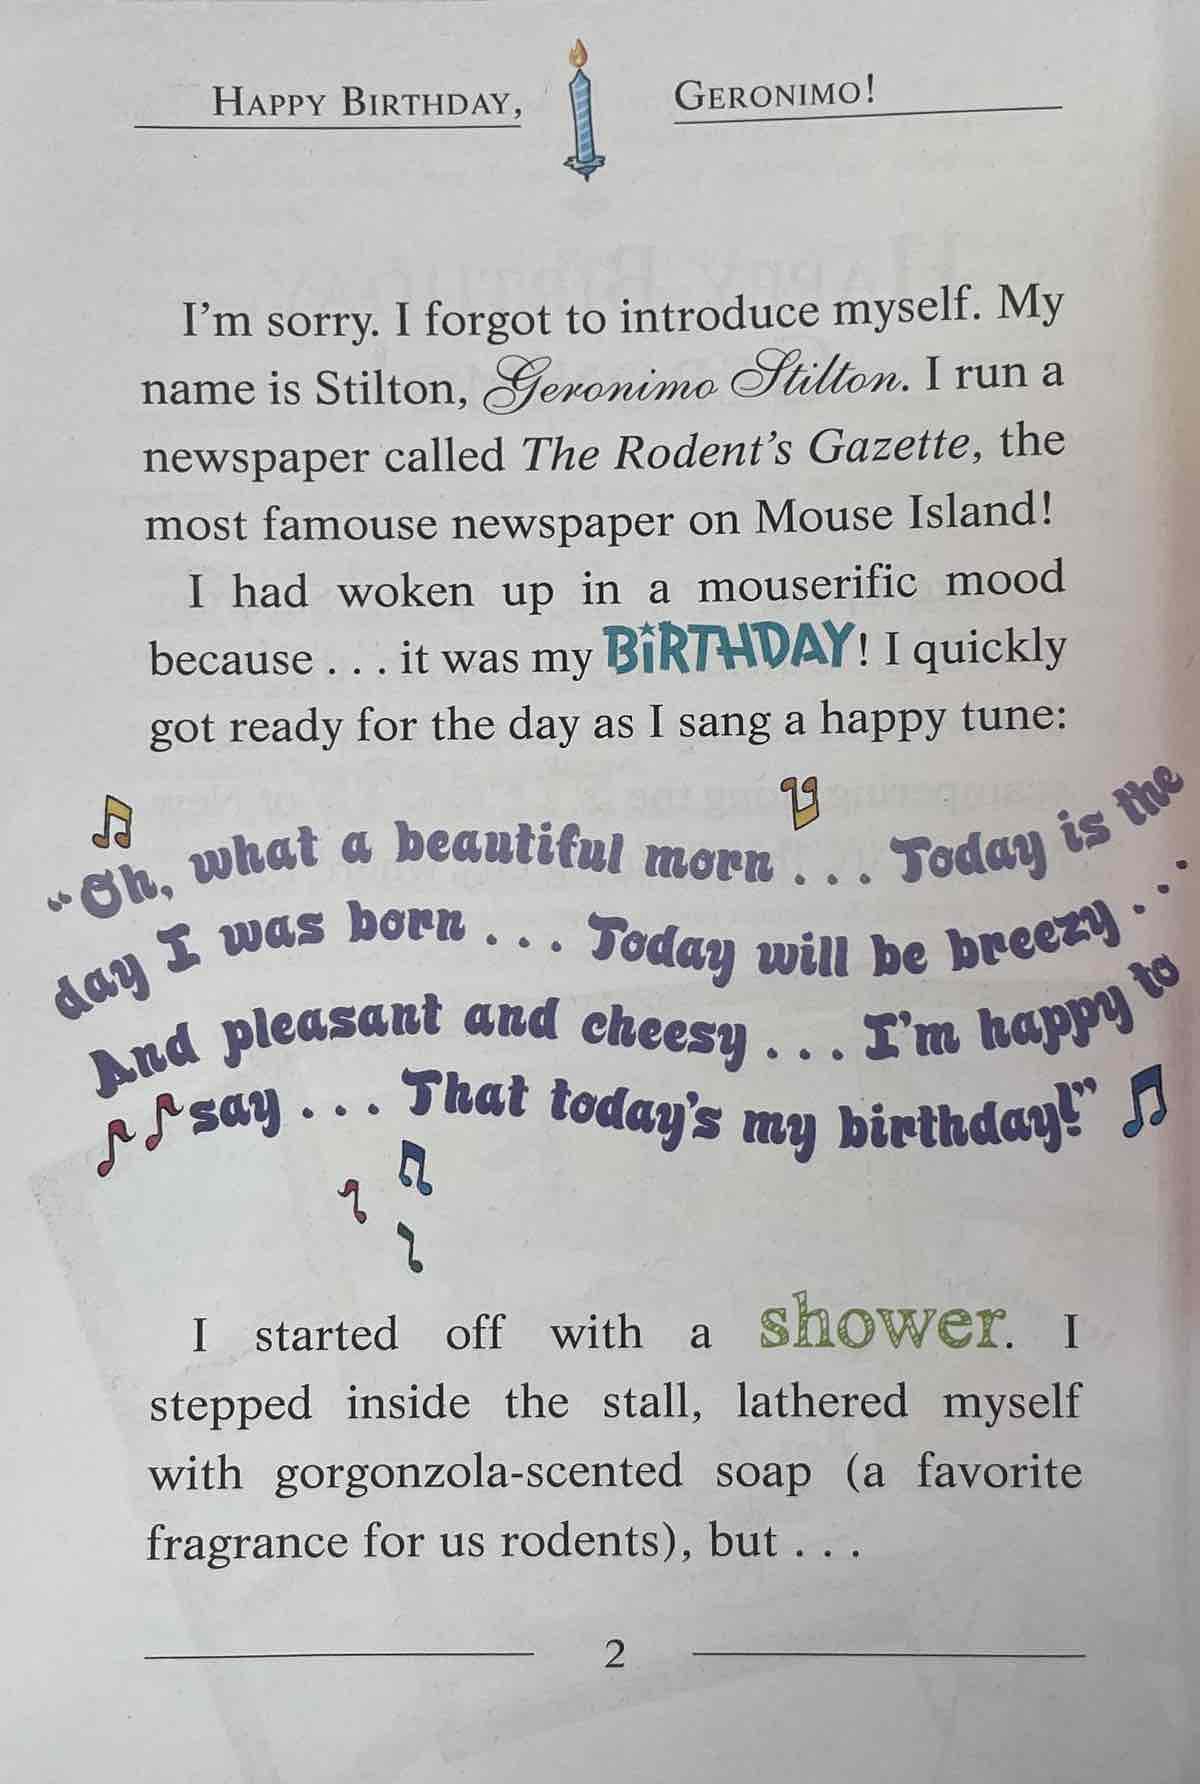 HAPPY BIRTHDAY, GERONIMO!
I'm sorry. I forgot to introduce myself. My
name is Stilton, Geronimo Stilton. I run a
newspaper called The Rodent's Gazette, the
most famouse newspaper on Mouse Island!
I had woken up in a mouserific mood
because . . . it was my BiRTHDAY! I quickly
got ready for the day as I sang a happy tune:
“Oh, what a beautiful morn . . . Today is the
day I was born . . . Today will be breezy . . .
And pleasant and cheesy . . . I'm happy to
say . . . That today's my birthday!”
I started off with a shower. I
stepped inside the stall, lathered myself
with gorgonzola-scented soap (a favorite
fragrance for us rodents), but . . .
2